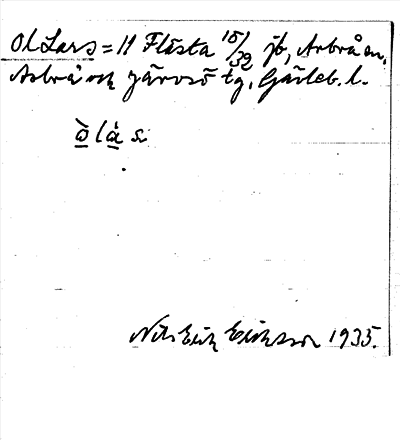 Ol Lars = 11 Flästa 15/32 jb, Arbrå sn,
Arbrå och Järvsö tg, Gävleb. l.
ò̲ l à̲ s
Nils Erik Eriksson 1935.